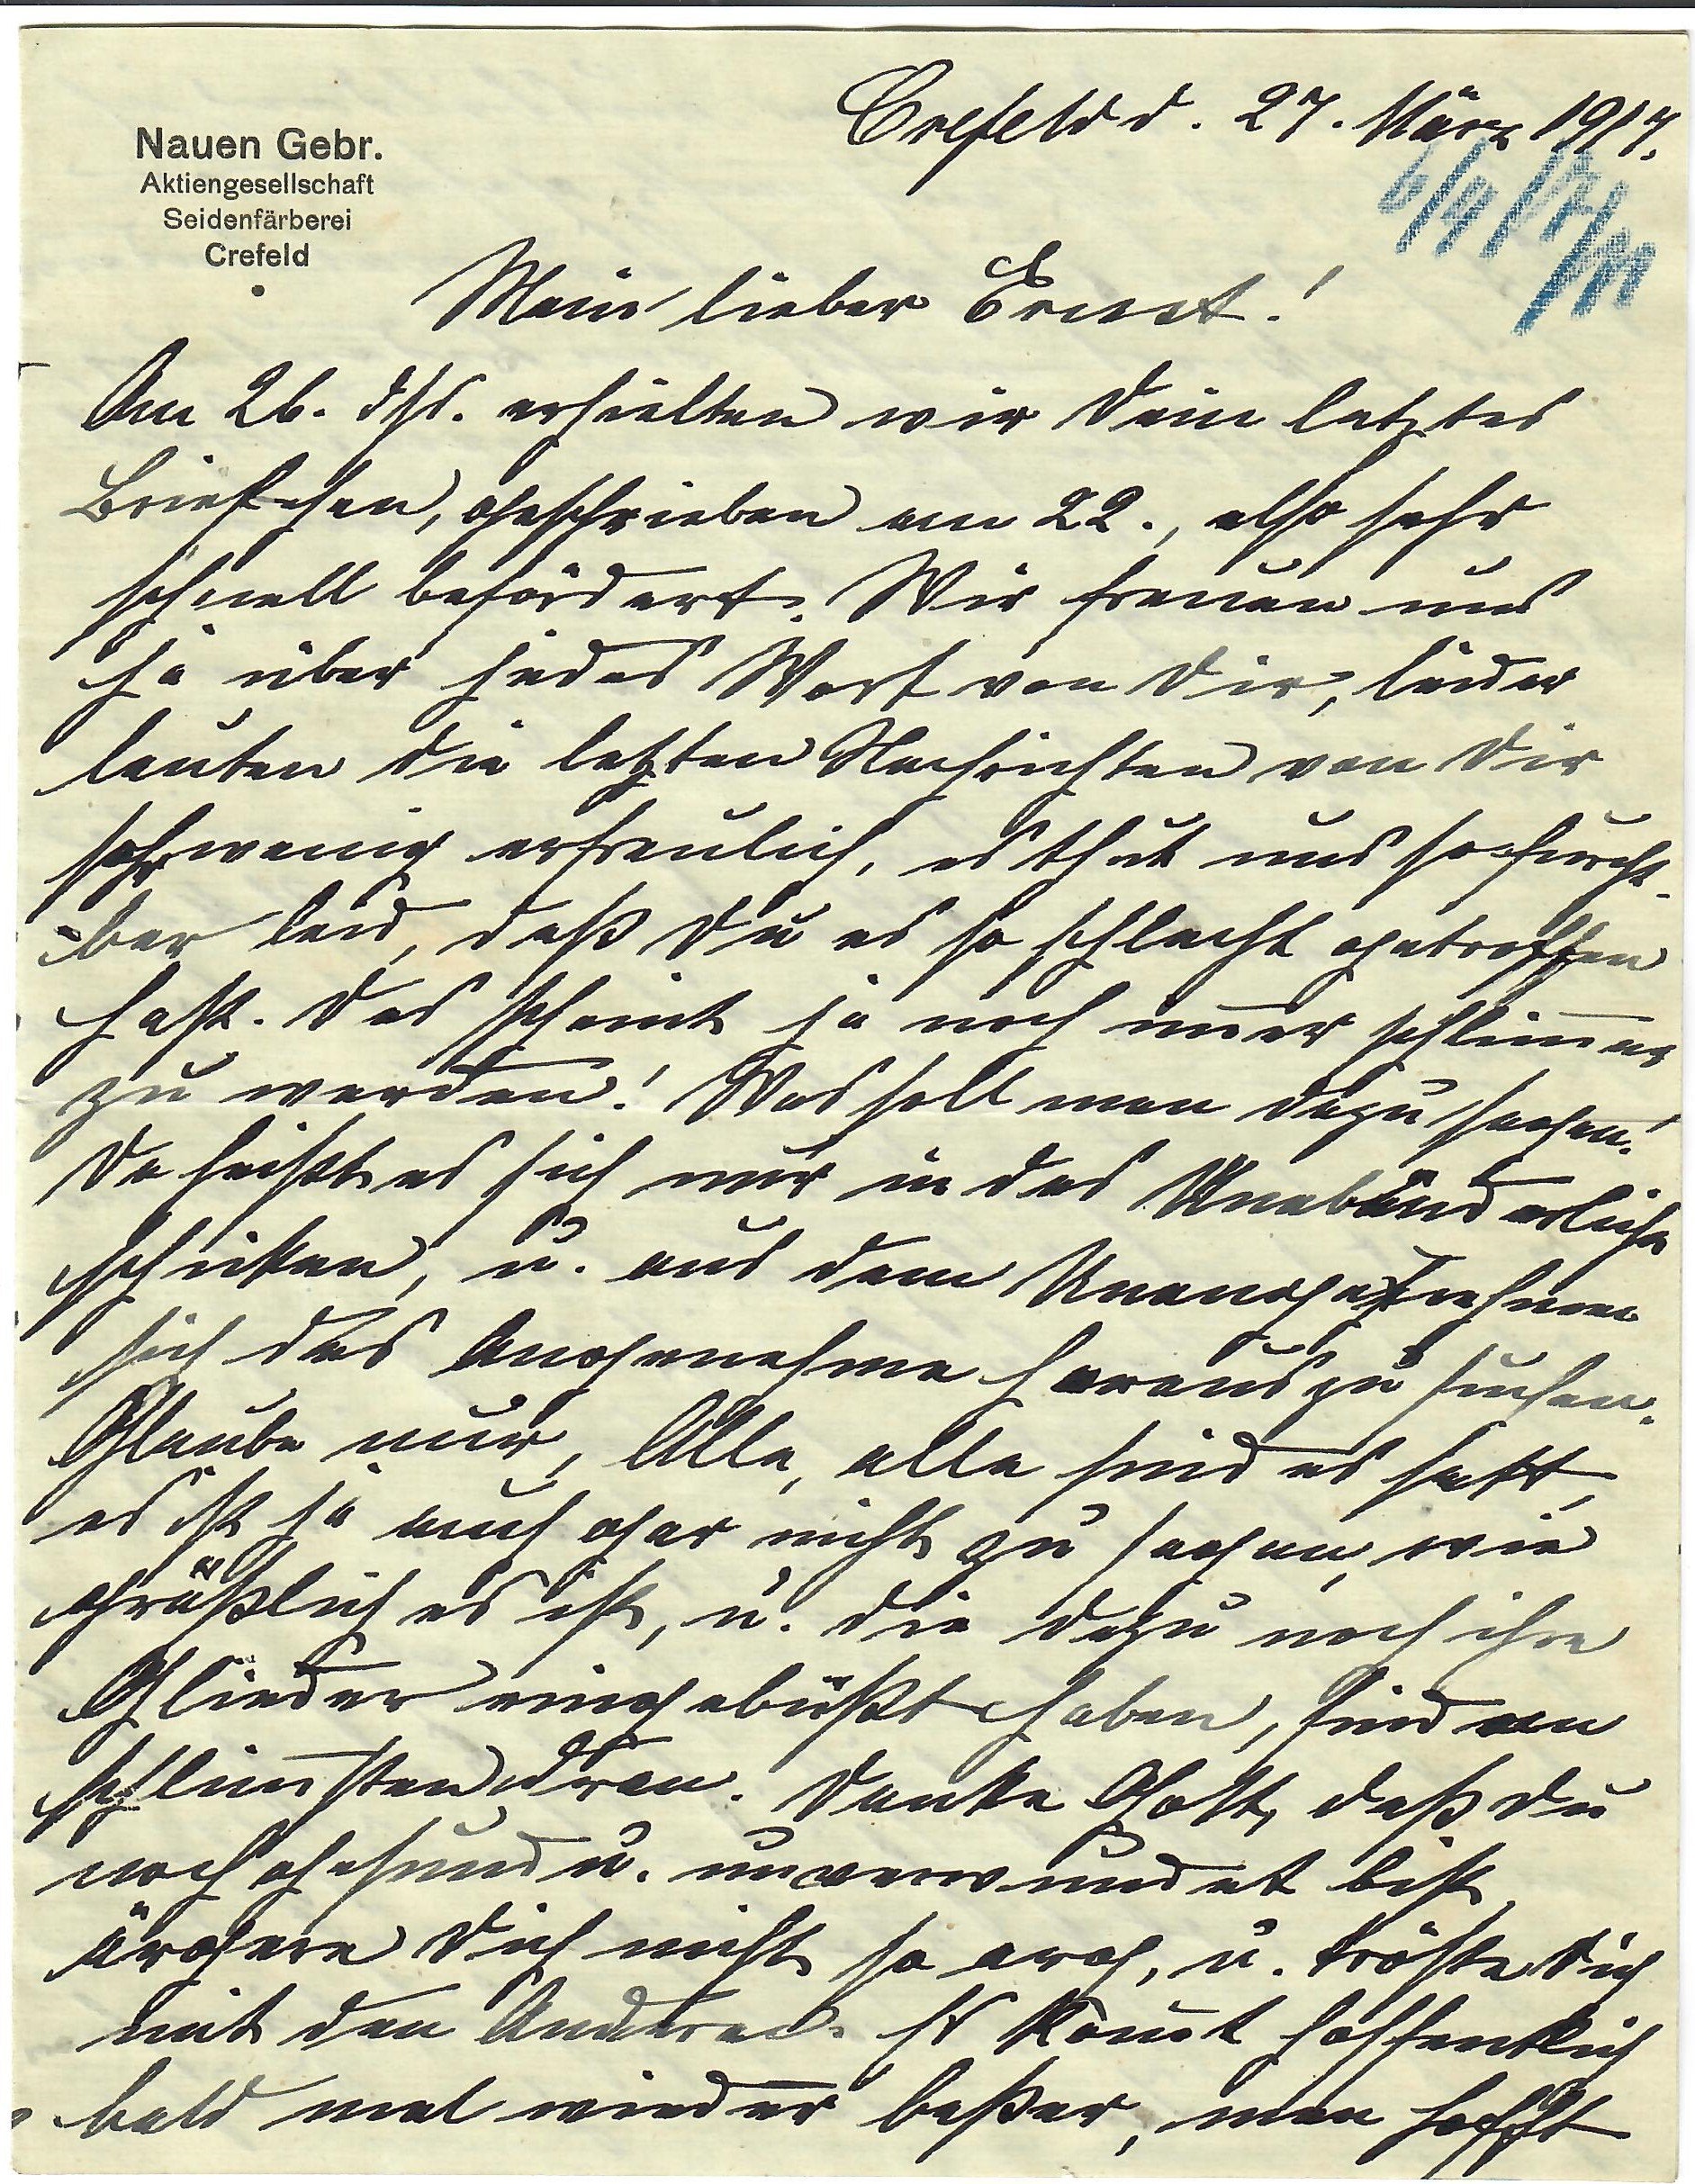 Crefeld d. 27. März 1917.
Nauen Gebr.
Aktiengesellschaft
Seidenfärberei
Crefeld
Mein lieber Ernst!
Am 26. ds. erhielten wir Dein letztes
Briefchen, geschrieben am 22., also sehr
schnell befördert. Wir freuen uns
ja über jedes Wort von Dir, leider
lauten die letzten Nachrichten von Dir
sehr wenig erfreulich, es thut uns so furcht-
-bar leid, daß Du es so schlecht getroffen
hast. Das scheint ja noch im̅er schlim̅er
zu werden! Was soll man dazu sagen!
Da heißt es sich nur in das Unabänderliche
schicken, u. aus dem Unangenehmen
sich das Angenehme herauszu suchen.
Glaube nur, Alle, alle sind es satt,
es ist ja auch gar nicht zu sagen, wie
gräßlich es ist, u. die dazu noch ihre
Glieder eingebüßt haben, sind am
schlim̅sten dran. Danke Gott, daß Du
noch gesund u. unverwundet bist,
ärgere Dich nicht so arg, u. tröste Dich
mit den Anderen. Es kom̅t hoffentlich
bald mal wieder beßer, man hofft